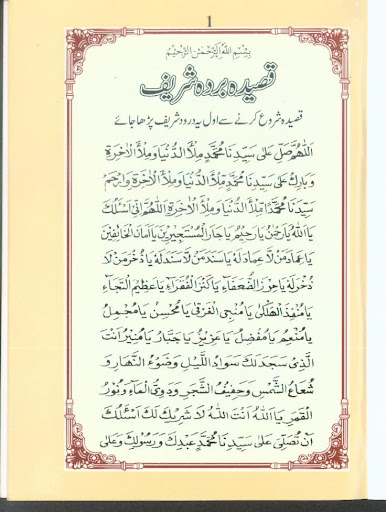 1
بِسْمِ اللّٰهِ الرَّحْمٰنِ الرَّحِيْمِ
قصیدہ بردہ شریف
قصیدہ شروع کرنے سے اول یہ درود شریف پڑھا جائے
اَللّٰهُمَّ صَلِّ عَلٰى سَيِّدِنَا مُحَمَّدٍ مِلْأَ الدُّنْيَا وَمِلْأَ الْاٰخِرَةِ
وَبَارِكْ عَلٰى سَيِّدِنَا مُحَمَّدٍ مِلْأَ الدُّنْيَا وَمِلْأَ الْاٰخِرَةِ وَارْحَمْ
سَيِّدَنَا مُحَمَّدًا مِلْأَ الدُّنْيَا وَمِلْأَ الْاٰخِرَةِ اَللّٰهُمَّ اِنِّيْ اَسْئَلُكَ
يَا اَللّٰهُ يَا رَحْمٰنُ يَا رَحِيْمُ يَا جَارَ الْمُسْتَجِيْرِيْنَ يَا اَمَانَ الْخَائِفِيْنَ
يَا عِمَادَ مَنْ لَّا عِمَادَ لَهٗ يَا سَنَدَ مَنْ لَّا سَنَدَ لَهٗ يَا ذُخْرَ مَنْ لَّا
ذُخْرَ لَهٗ يَا حِرْزَ الضُّعَفَاءِ يَا كَنْزَ الْفُقَرَاءِ يَا عَظِيْمَ الرَّجَاءِ
يَا مُنْقِذَ الْهَلْكٰى يَا مُنْجِيَ الْغَرْقٰى يَا مُحْسِنُ يَا مُجْمِلُ
يَا مُنْعِمُ يَا مُفْضِلُ يَا عَزِيْزُ يَا جَبَّارُ يَا مُنِيْرُ اَنْتَ
الَّذِيْ سَجَدَ لَكَ سَوَادُ اللَّيْلِ وَضَوْءُ النَّهَارِ وَ
شُعَاعُ الشَّمْسِ وَحَفِيْفُ الشَّجَرِ وَدَوِيُّ الْمَاءِ وَنُوْرُ
الْقَمَرِ يَا اَللّٰهُ اَنْتَ اللّٰهُ لَا شَرِيْكَ لَكَ اَسْئَلُكَ
اَنْ تُصَلِّيَ عَلٰى سَيِّدِنَا مُحَمَّدٍ عَبْدِكَ وَرَسُوْلِكَ وَعَلٰى